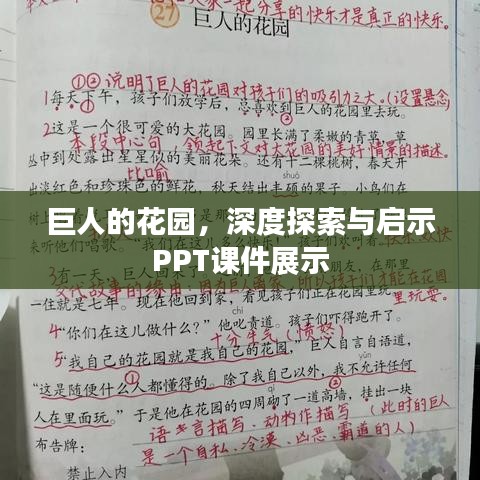 本文 大家一起分享的快乐才是真正的快乐。
27 巨人的花园
①②说明了巨人的花园对孩子们的吸引力之大。(设置悬念)
1每天下午，孩子们放学后，总喜欢到巨人的花园里去玩。
2这是一个很可爱的大花园。园里长满了柔嫩的青草，草
本段中心句，领起下文对大花园的美好情景的描述。
丛中到处露出星星似的美丽花朵。还有十二棵桃树，春天开
比喻
出淡红色和珍珠色的鲜花，秋天结出丰硕的果子。小鸟们在
巨人的花园，深度探索与启示
PPT课件展示
一住就是七年。现在他回到家，看见孩子们正在花园里玩。
里玩耍。
4“你们在这儿做什么？”他叱责道。孩子们吓得跑开了。
十分生气（愤怒）
5“我自己的花园就是我自己的花园，”巨人自言自语道，
“这是随便什么人都懂得的。除了我自己以外，我不允许任何
人在里面玩。”于是他在花园的四周砌了一道高墙，挂出一块
语言描写、动作描写（此时的巨人
布告牌：
是一个自私、冷漠、凶恶、霸道的人）
禁止入内